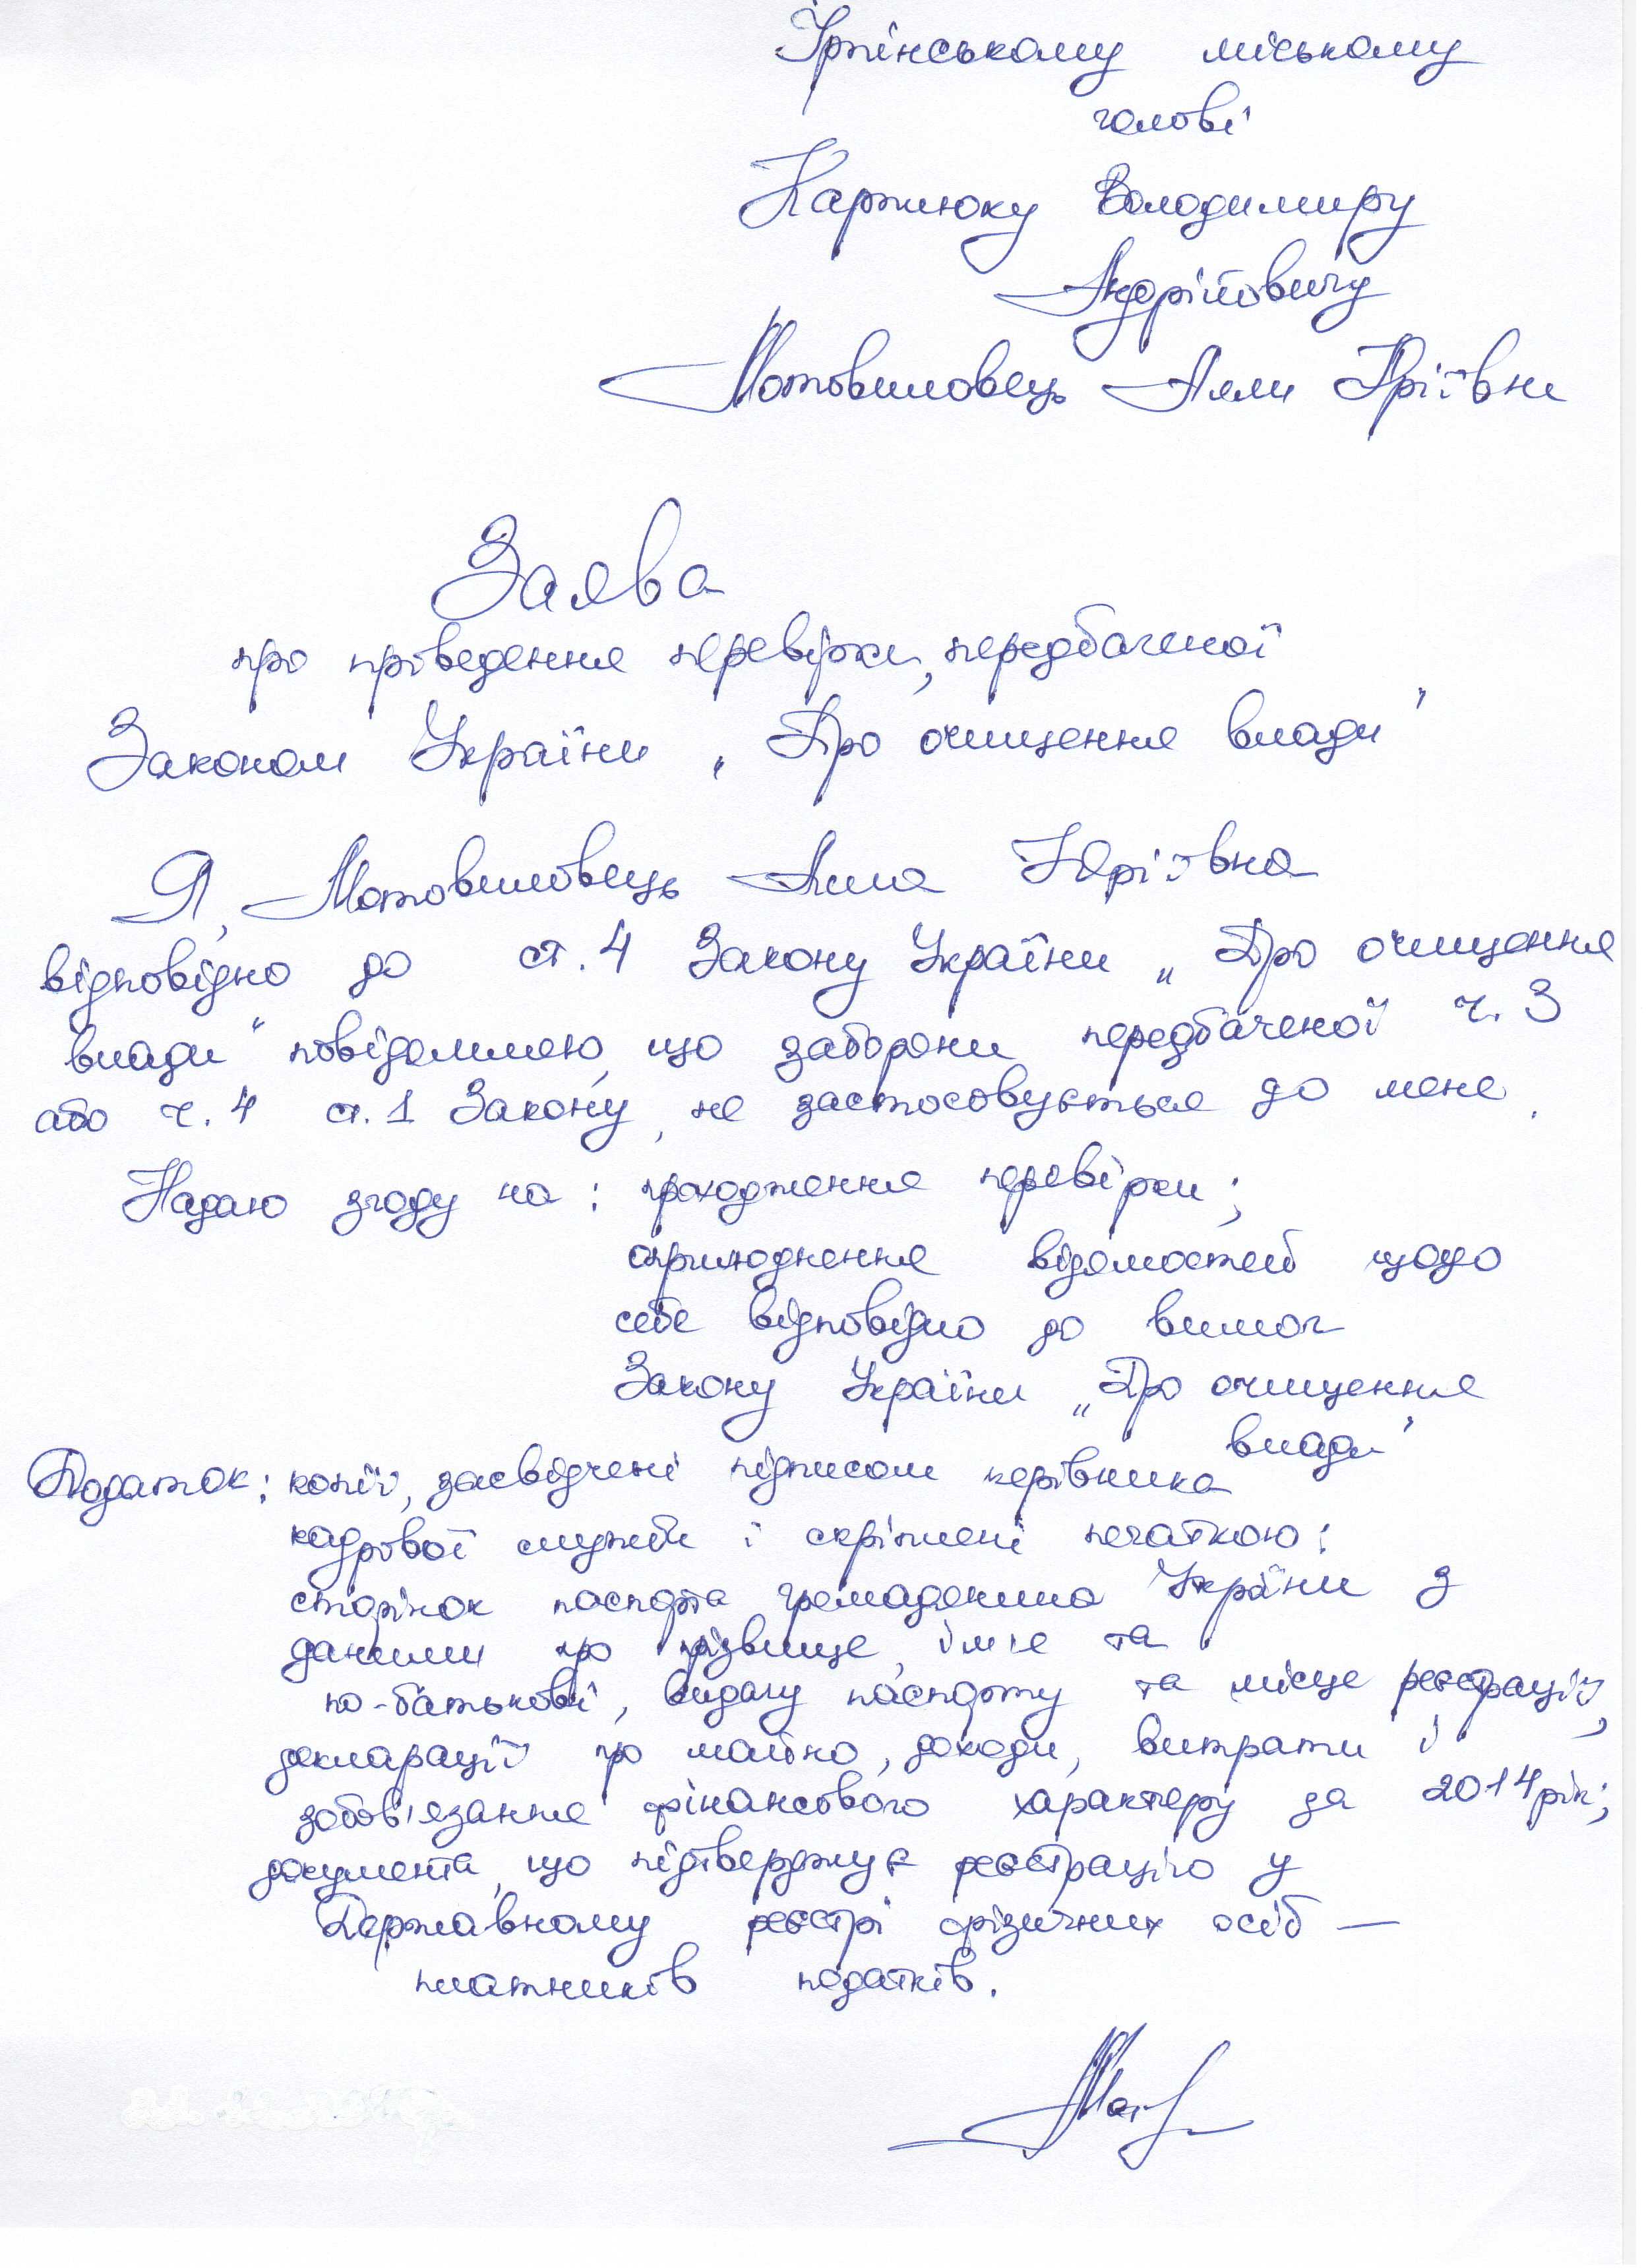 Ірпінському міському
голові
Карплюку Володимиру
Андрійовичу
Мотовиловець Алли Юріївни
Заява
про проведення перевірки, передбаченої
Законом України „Про очищення влади"
Я, Мотовиловець Алла Юріївна
відповідно до ст. 4 Закону України „Про очищення
влади" повідомляю, що заборони, передбаченої ч. 3
або ч. 4 ст. 1 Закону, не застосовується до мене.
Надаю згоду на: проходження перевірки;
оприлюднення відомостей щодо
себе відповідно до вимог
Закону України „Про очищення
влади"
Додаток: копії, засвідчені підписом керівника
кадрової служби і скріплені печаткою:
сторінок паспорта громадянина України з
даними про прізвище, ім'я та
по-батькові, видачу паспорту та місце реєстрації,
декларації про майно, доходи, витрати і
зобов'язання фінансового характеру за 2014 рік;
документа, що підтверджує реєстрацію у
Державному реєстрі фізичних осіб —
платників податків.